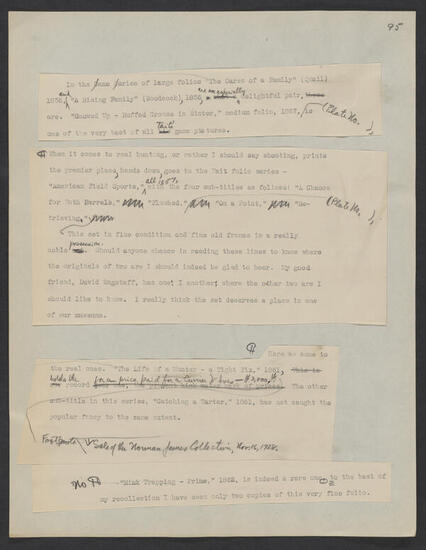 95
In the same series of large folios "The Cares of a Family" (Quail)
1856, and "A Rising Family" (Woodcock), 1856, are an especially delightful pair,
are. "Snowed Up - Ruffed Grouse in Winter," medium folio, 1867, is (Plate No. ),
one of the very best of all Tait's game pictures.
¶ When it comes to real hunting, or rather I should say shooting, prints
the premier place, hands down, goes to the Tait folio series -
"American Field Sports," all 1857, with the four sub-titles as follows: "A Chance
for Both Barrels," "Flushed," "On a Point," "Re-
trieving," (Plate No. ),
This set in fine condition and fine old frames is a really
noble possession. Should anyone chance in reading these lines to know where
the originals of two are I should indeed be glad to hear. My good
friend, David Wagstaff, has one; another; where the other two are I
should like to know. I really think the set deserves a place in one
of our museums.
¶ Here we come to
the real ones. "The Life of a Hunter - a Tight Fix," 1861, This is
holds the record for a price paid for a Currier & Ives — $3,000. The other
sub-title in this series, "Catching a Tartar," 1861, has not caught the
popular fancy to the same extent.
Footnote Sale of the Norman James Collection, Nov. 16, 1928.
No ¶ "Mink Trapping - Prime," 1862, is indeed a rare one, to the best of
my recollection I have seen only two copies of this very fine folio.